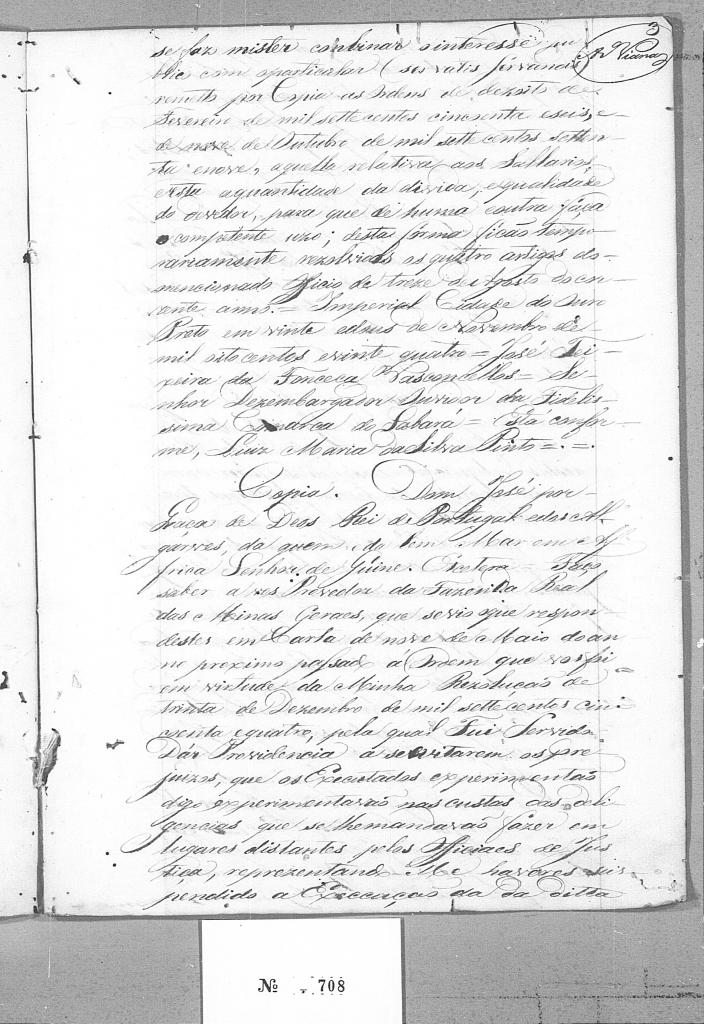 3
Rº Viana
se faz mister conbinar o interesse pu
blico com o particular (servatis servandis)
remetto por Copia as Ordens de dezoito de
Fevereiro de mil sette centos cincoenta e seis, e
de nove de Outubro de mil sette centos setten-
ta e nove, aquella relativa aos Sallarios,
e esta a quantidade da divida, e qualidade
do devedor, para que de huma e outra faça
o competente uzo; desta fórma ficão tempo-
rariamente rezolvidos os quatro artigos do
mencionado Officio de treze de Agosto do cor-
rente anno. = Imperial Cidade do Ouro
Preto em vinte e dous de Novembro de
mil oito centos e vinte quatro = José Tei-
xeira da Fonceca Vasconcellos = Se-
nhor Dezembargador Ouvidor da Fidelis-
sima Comarca do Sabará = Está confor-
me, Luiz Maria da Silva Pinto = . = .
Copia. Dom José por
Graça de Deos Rei de Portugal e dos Al-
garves, da quem e da lem Mar em Af
frica Senhor de Guine. Etcetera = Faço
saber a vós Provedor da Fazenda Real
das Minas Geraes, que se vio o que respon-
destes em Carta de nove de Maio do an
no proximo passado a Ordem que vos foi
em virtude da Minha Rezolução de
trinta de Dezembro de mil sette centos cin
coenta e quatro, pela qual Fui Servido
Dár Providencia a se evitarem os pre
juizos, que os Executados experimentão
digo experimentarão nas custas das deli-
gencias que se lhe mandavão fazer em
lugares distantes pelos Officiaes de Jus
tiça, reprezentando-Me haveres sus
pendido a Execução da da ditta
Nº 708